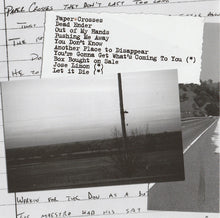 PAPER CROSSES THEY DON'T LAST TOO LONG
Paper-Crosses
Dead Ender
Out of My Hands
Pushing Me Away
You Don't Know
Another Place to Disappear
You're Gonna Get What's Coming To You (*)
Box Bought on Sale
Jose Limon (*)
Let it Die (*)
WORKIN FOR THE DON AS A
THE MAESTRO HAD HIS SAY